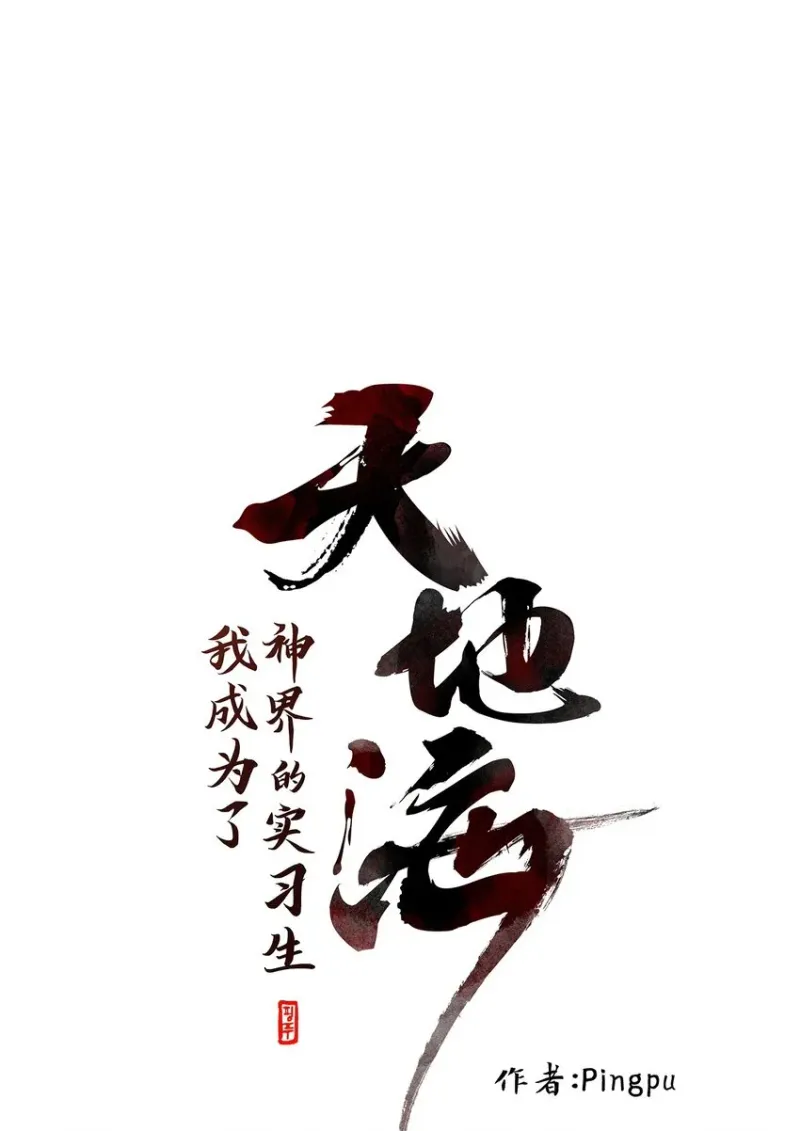 天地海
神界的实习生
我成为了
作者:Pingpu